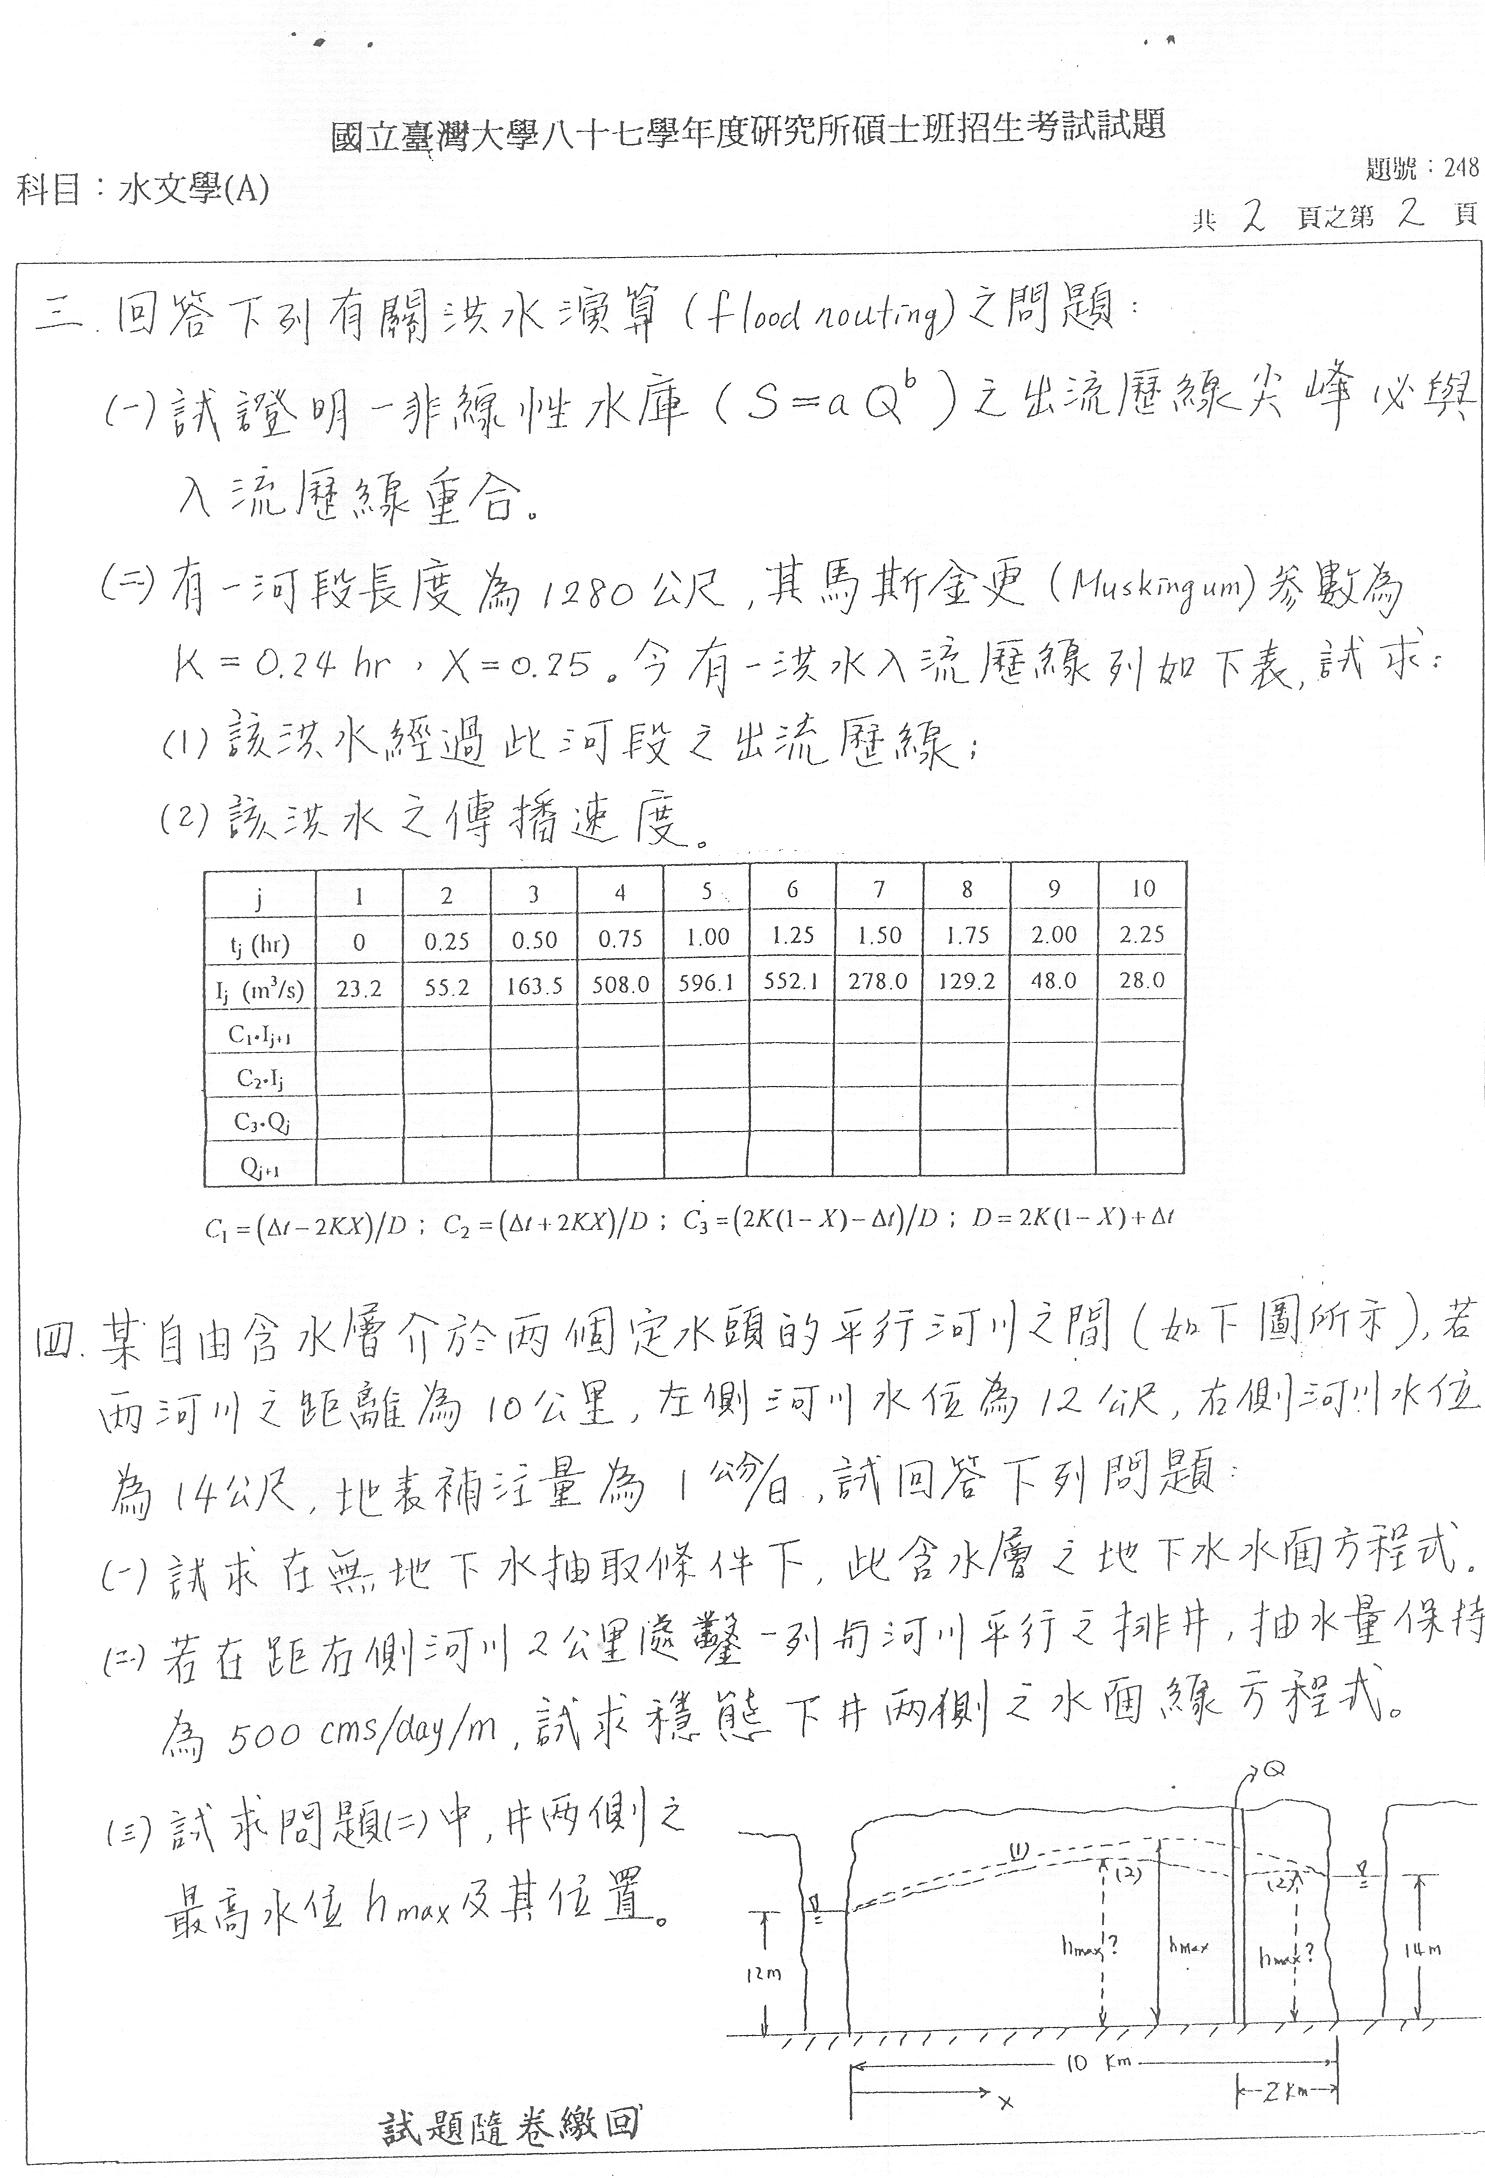 國立臺灣大學八十七學年度研究所碩士班招生考試試題
題號：248
科目：水文學(A)
共 2 頁之第 2 頁
三. 回答下列有關洪水演算 (flood routing) 之問題：
(一) 試證明一非線性水庫 (S=aQ^b) 之出流歷線尖峰必與
入流歷線重合。
(二) 有一河段長度為1280公尺, 其馬斯金更 (Muskingum) 參數為
K = 0.24 hr, X=0.25。今有一洪水入流歷線列如下表, 試求：
(1) 該洪水經過此河段之出流歷線；
(2) 該洪水之傳播速度。
j 1 2 3 4 5 6 7 8 9 10
tj (hr) 0 0.25 0.50 0.75 1.00 1.25 1.50 1.75 2.00 2.25
Ij (m³/s) 23.2 55.2 163.5 508.0 596.1 552.1 278.0 129.2 48.0 28.0
C1•Ij+1
C2•Ij
C3•Qj
Qj+1
C1=(Δt−2KX)/D ; C2=(Δt+2KX)/D ; C3=(2K(1−X)−Δt)/D ; D=2K(1−X)+Δt
四. 某自由含水層介於兩個定水頭的平行河川之間 (如下圖所示), 若
兩河川之距離為10公里, 左側河川水位為12公尺, 右側河川水位
為14公尺, 地表補注量為 1 公分/日, 試回答下列問題：
(一) 試求在無地下水抽取條件下, 此含水層之地下水水面方程式.
(二) 若在距右側河川2公里處鑿一列與河川平行之排井, 抽水量保持
為 500 cms/day/m, 試求穩態下井兩側之水面線方程式。
(三) 試求問題(二)中, 井兩側之
最高水位 hmax 及其位置。
Q
(1)
(2)
(2)
hmax?
hmax
hmax?
12m
14m
10 Km
2 Km
x
試題隨卷繳回